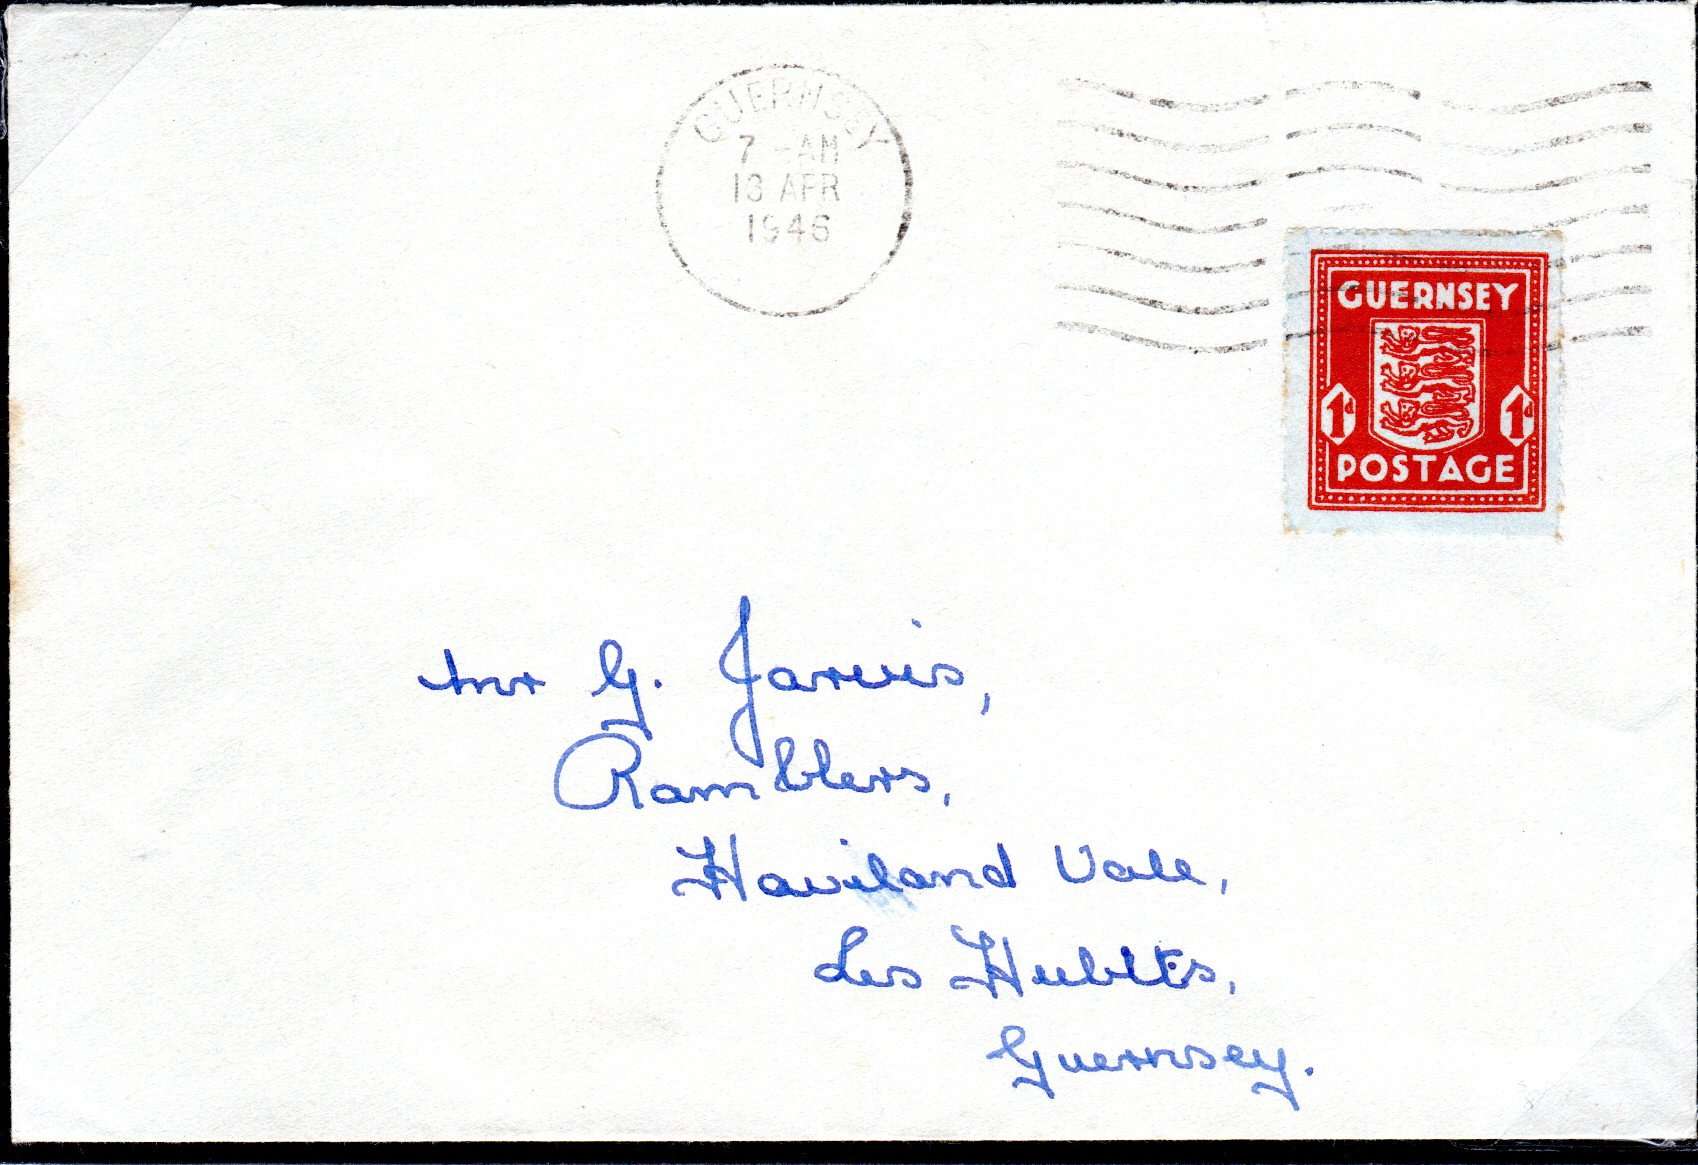 GUERNSEY
7 - AM
13 APR
1946
GUERNSEY
1d 1d
POSTAGE
Mr G. Jarvis,
Ramblers,
Haviland Vale,
Les Hubits,
Guernsey.